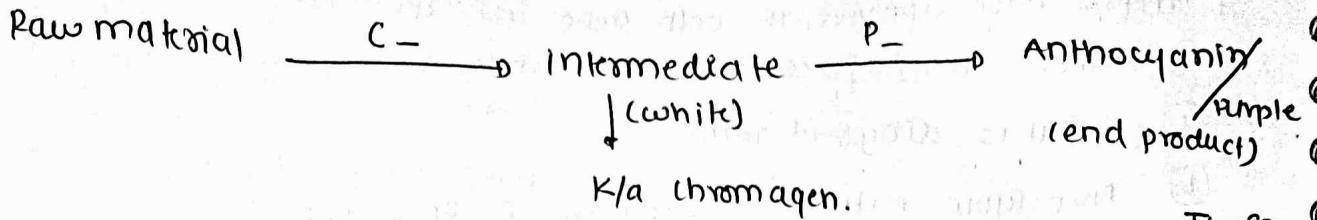 Raw material C – Intermediate P – Anthocyanin/
(white) purple
(end product)
K/a chromagen.